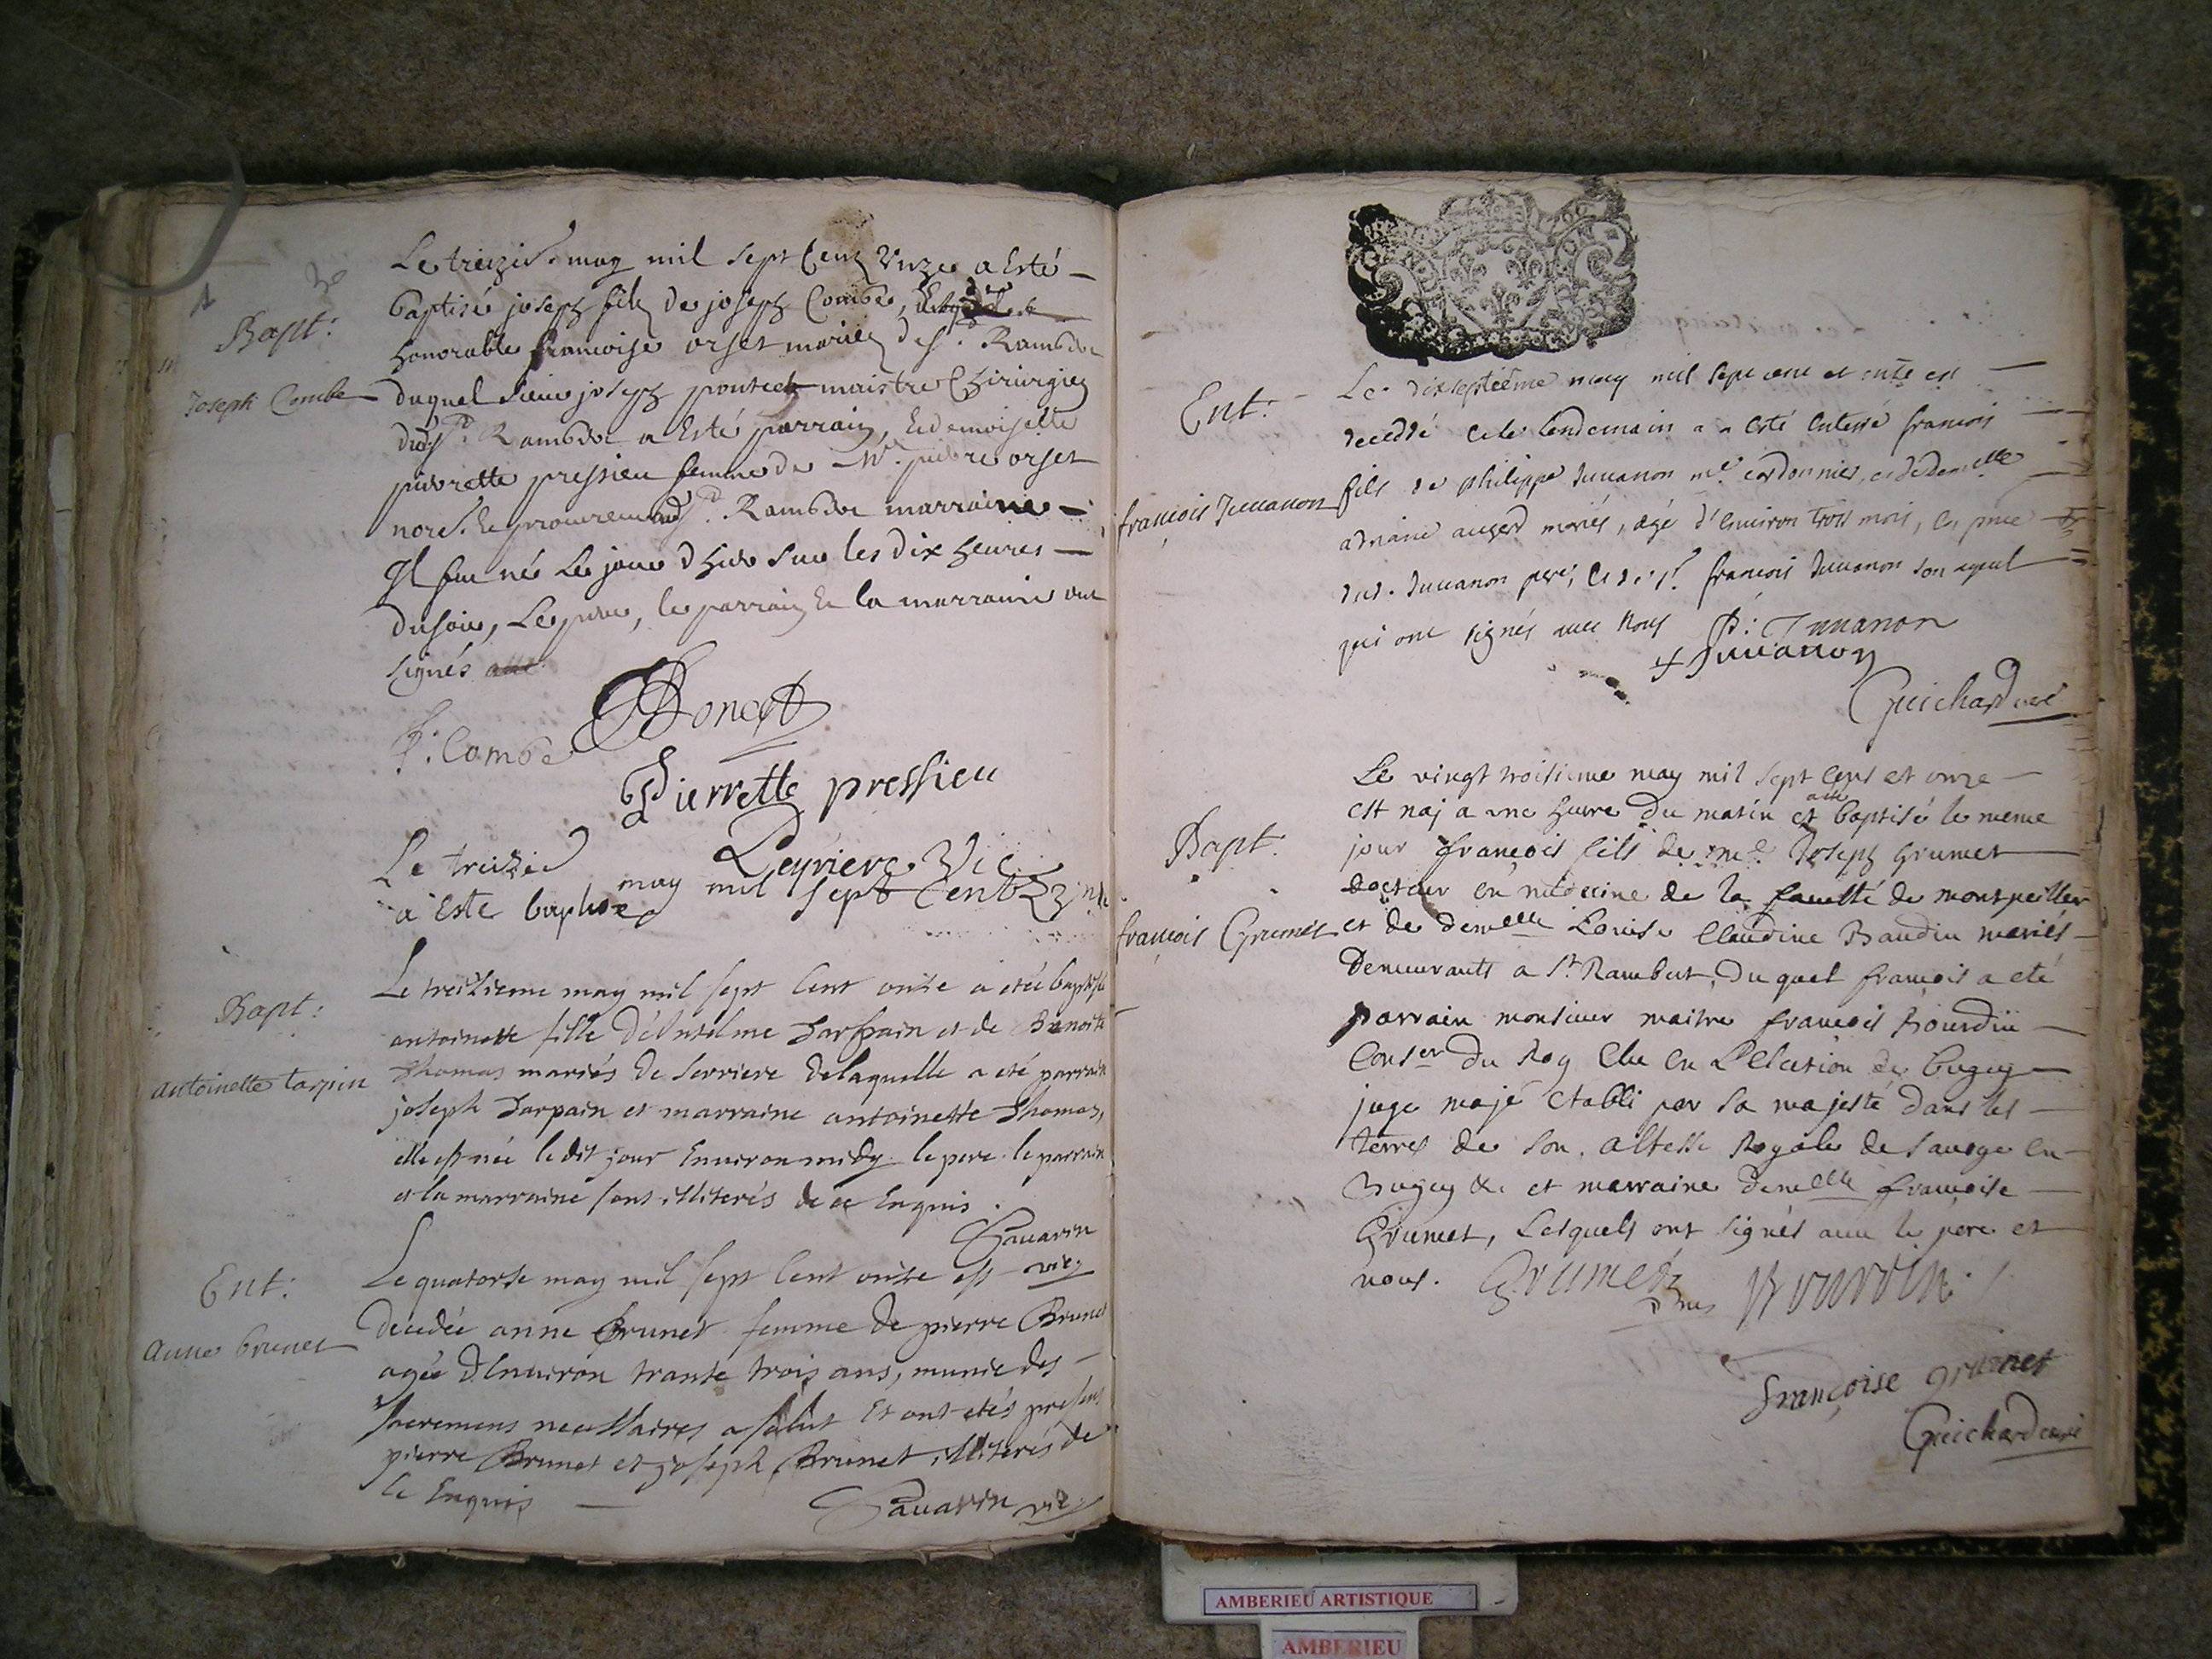 Bapt:
Joseph Combe
Le treizie. may mil sept Cent Unze a Esté
baptisé joseph filz de joseph Combe, de
honorable francoise orset mariez de st. Rambert
duquel sieur joseph ponteet maistre Chirurgien
dud st. Rambert a Esté parrain, Et demoiselle
pierrette pressieu femme de Mr. pierre orset
nore. Et procureur aud st. Rambert marraine
Il fut né Le jour d hier sur les dix heures
du soir, Le pere, le parrain Et la marraine ont
signés
J: Combe
Pierrette pressieu
Peyriere Vic:
Le treizie
may mil sept Cent
a Este baptize
Bapt:
antoinette tarpin
Le treisieme may mil sept Cent onze a été baptisée
antoinette fille d'Antelme Tarpain et de Benoite
Thomas mariés de Serriere de laquelle a eté parrain
joseph Tarpain et marraine antoinette Thomas,
elle est née le dit jour Environ midy le pere le parrain
et la marraine sont illiterés de ce Enquis.
Sauarin
vic:
Ent:
anne brunet
Le quatorse may mil sept Cent onze est
decedée anne Brunet femme de pierre Brunet
agée d'Enuiron trante trois ans, munie des
sacremens necessaires a salut Et ont etés presens
pierre Brunet et joseph Brunet illiterés de
ce Enquis
Sauarin vic:
Ent:
françois Juuanon
Le dixseptiéme may mil sept cent et onze est
decedé et le lendemain a esté enterré francois
fils de philippe Juuanon me. cordonnier, et de demelle
adriane auger mariés, agé d'enuiron trois mois, en pnce
dud. Juuanon pere, et de sr. francois Juuanon son ayeul
qui ont signés auec Nous
P: Juuanon
f Juuanon
Guichard curé
Bapt:
françois Grumet
Le vingt troisieme may mil sept cens et onze
est naj a une heure du matin et a été baptisé le meme
jour françois fils de me. Joseph Grumet
docteur en medecine de la faculté de montpeillier
et de demelle Louise Claudine Baudin mariés
demeurants a St Rambert, du quel françois a eté
parrain monsieur maitre francois Bourdin
Conser du Roy Elu en L'Election de bugey
juge maje etabli par sa majesté dans les
terres de son altesse Royale de sauoye en
Bugey &c et marraine demelle francoise
Grumet, Lesquels ont signés auec le pere et
nous.
Grumet
Bourdin
françoise grumet
Guichard curé
AMBERIEU ARTISTIQUE
AMBERIEU